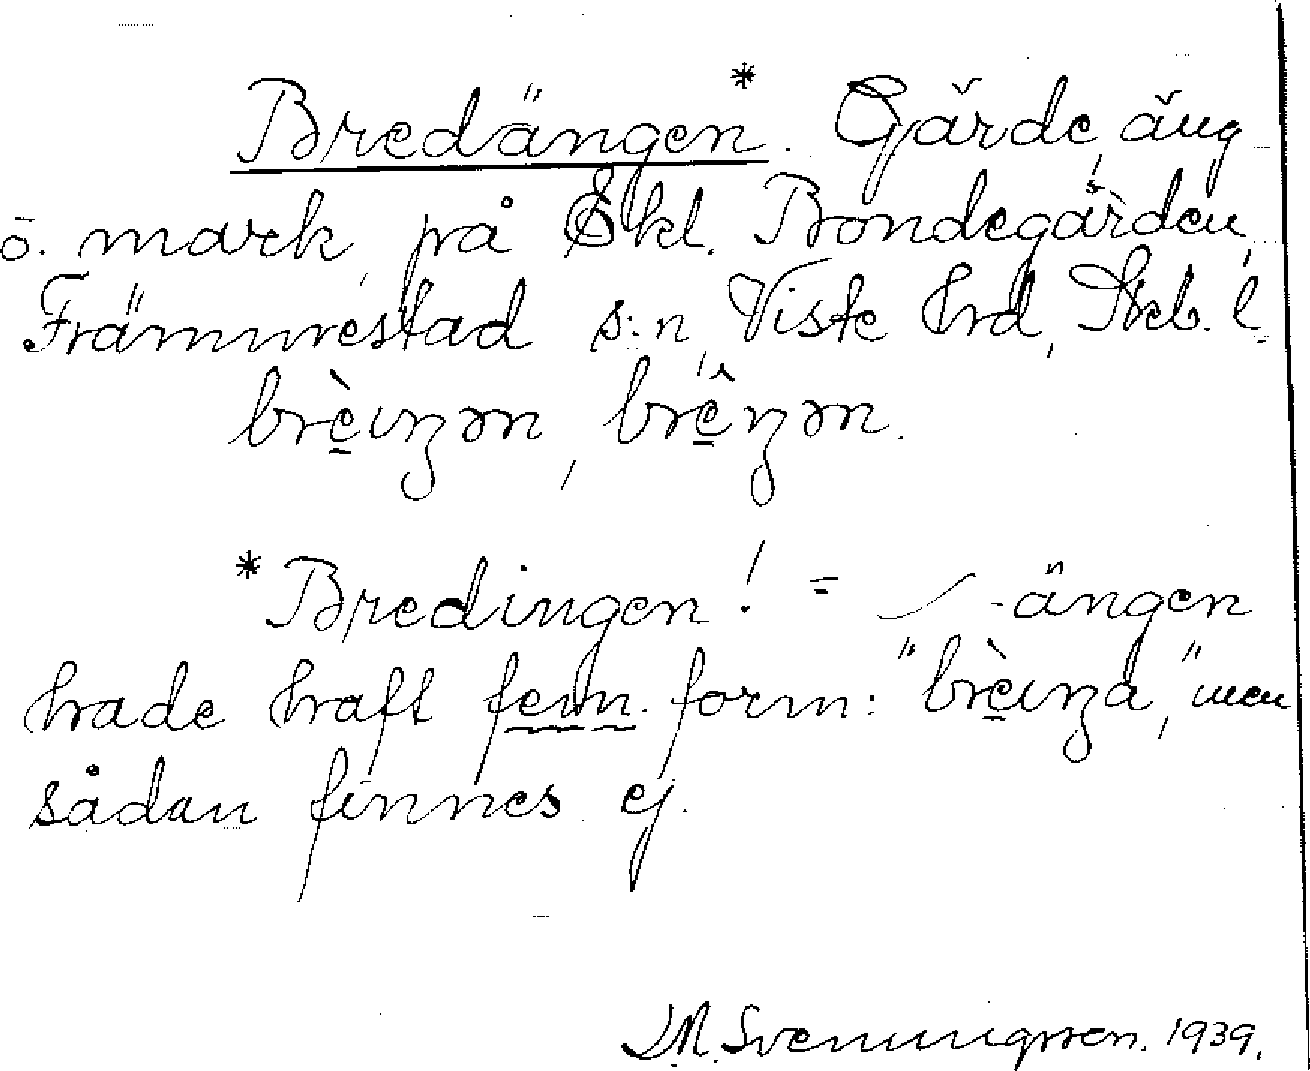 Bredängen*. Gärde, äng
o. mark, på Ekl. Bondegården,
Främmestad s:n, Viste hrd, Skb. l.
brèɩŋən, brêŋən.
*Bredingen! = ⁓ -ängen
hade haft fem. form: "brèɩŋa", men
sådan finnes ej.
Svenningsson. 1939.